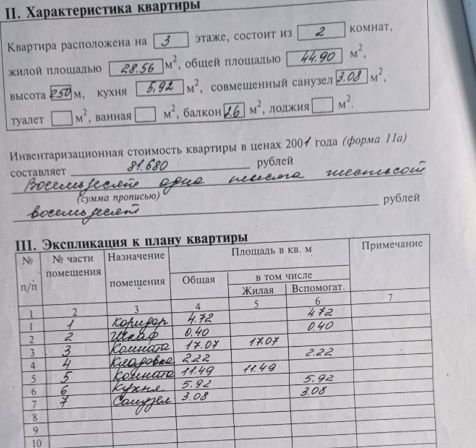 II. Характеристика квартиры
Квартира расположена на 3 этаже, состоит из 2 комнат,
жилой площадью 28.56 м², общей площадью 44.90 м²,
высота 250 м, кухня 5,92 м², совмещенный санузел 3.08 м²,
туалет м², ванная м², балкон 1.6 м², лоджия м².
Инвентаризационная стоимость квартиры в ценах 2001 года (форма 11а)
составляет 81.680 рублей
Восемьдесят одна тысяча шестьсот
(сумма прописью)
восемьдесят рублей
III. Экспликация к плану квартиры
№ п/п № части помещения Назначение помещения Площадь в кв. м Примечание
Общая в том числе
Жилая Вспомогат.
1 2 3 4 5 6 7
1 1 Коридор 4.72 4.72
2 2 Шкаф 0.40 0.40
3 3 Комната 17.07 17.07
4 4 Кладовка 2.22 2.22
5 5 Комната 11.49 11.49
6 6 Кухня 5.92 5.92
7 7 Санузел 3.08 3.08
8
9
10